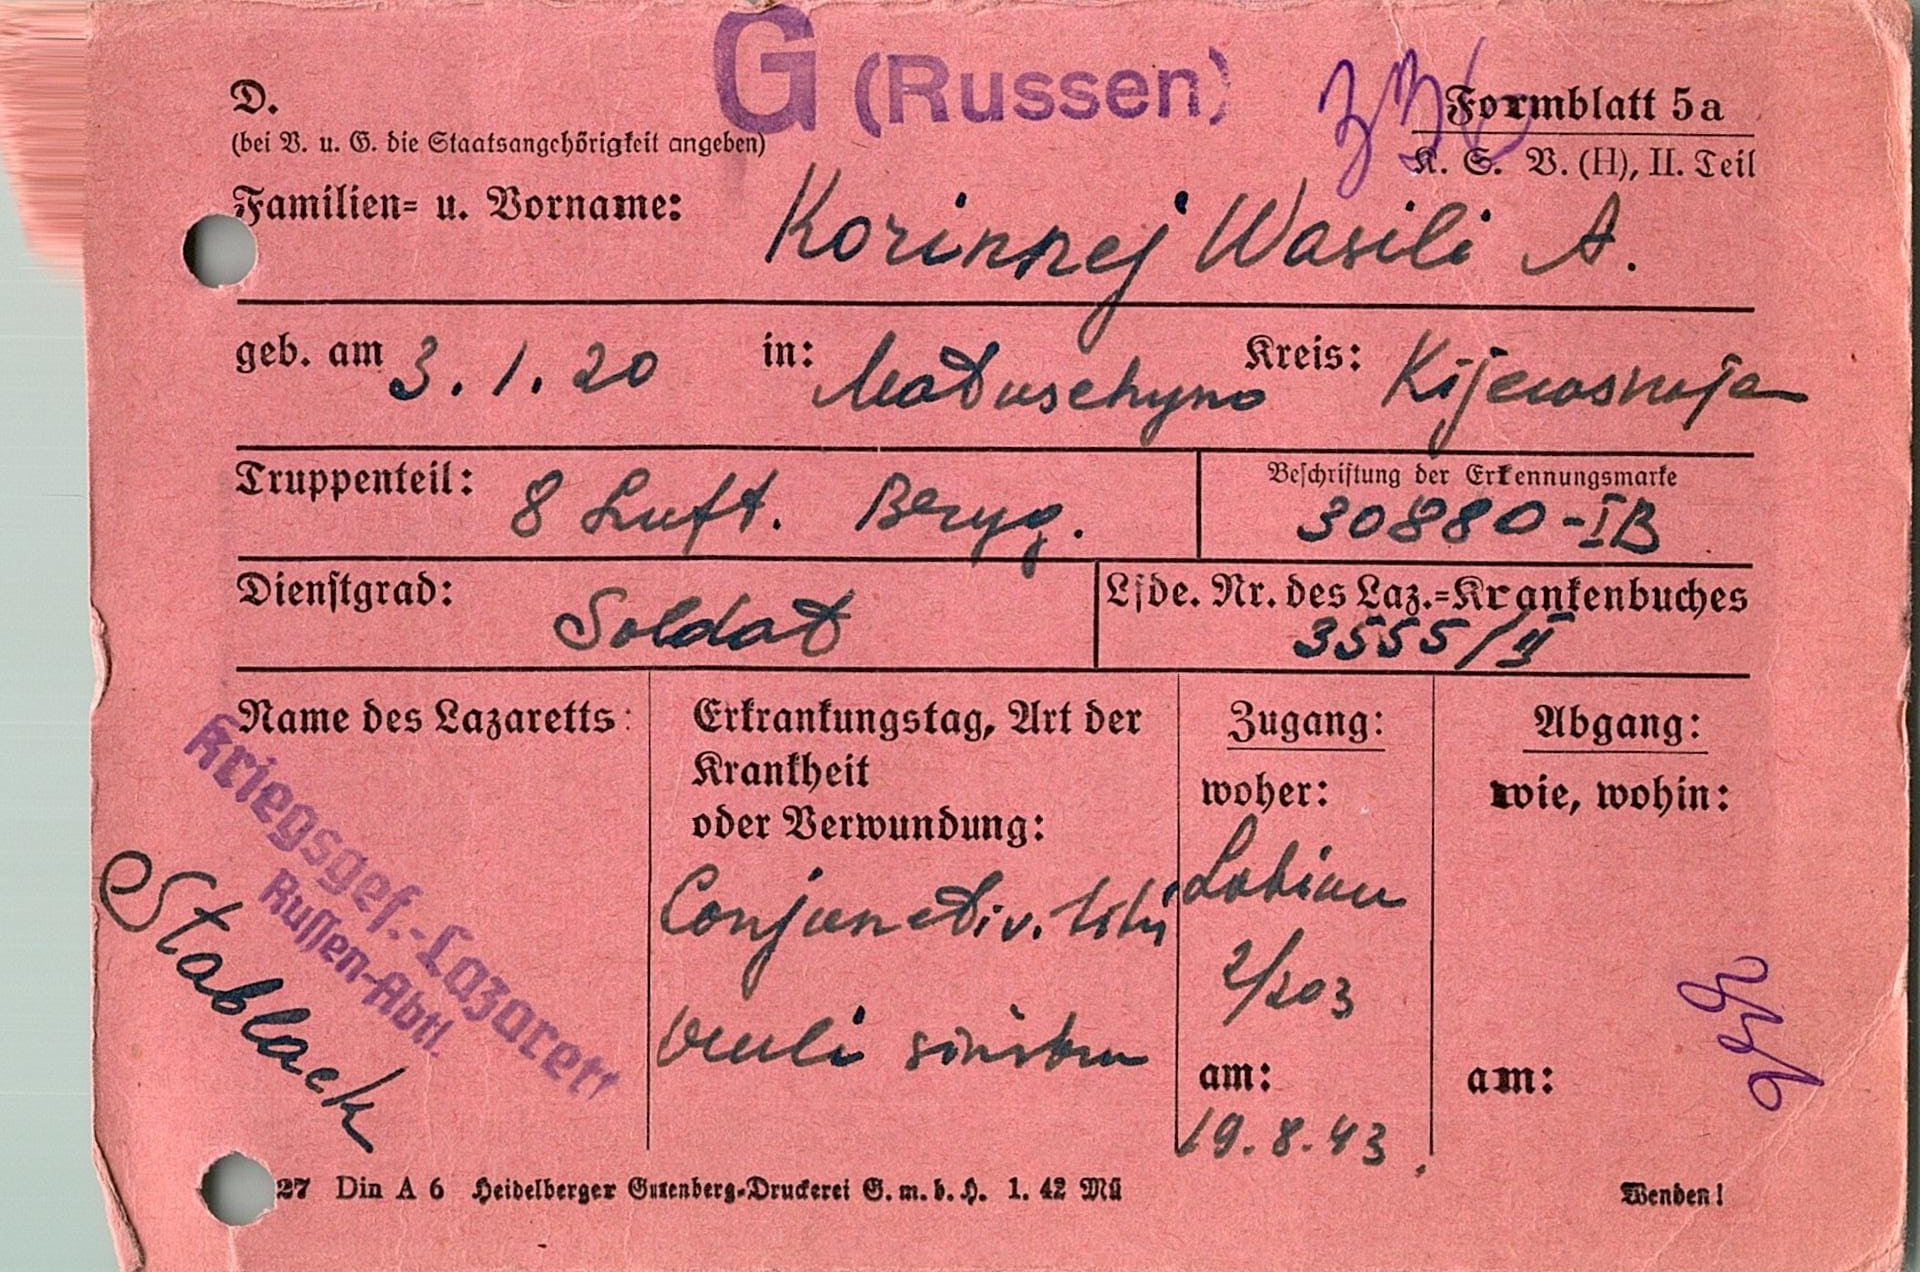 G (Russen)
336
D.
Formblatt 5a
(bei V. u. G. die Staatsangehörigkeit angeben)
K. S. V. (H), II. Teil
Familien= u. Vorname: Korinnej Wasili A.
geb. am 3. 1. 20 in: Matuschyno Kreis: Kijewskaja
Truppenteil: 8 Luft.
Beschriftung der Erkennungsmarke
30880-IB
Dienstgrad: Soldat
Lfde. Nr. des Laz.=Krankenbuches
3555/II
Name des Lazaretts:
Kriegsgef.-Lazarett
Russen-Abtl.
Stablack
Erkrankungstag, Art der
Krankheit
oder Verwundung:
Conjunctiv.
oculi sinistra
Zugang:
woher:
Labiau
2/203
am:
19.8.43.
Abgang:
wie, wohin:
am:
336
27 Din A 6 Heidelberger Gutenberg-Druckerei G. m. b. H. 1. 42 Mü
Wenden!